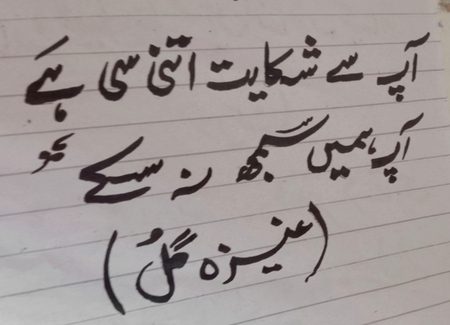 آپ سے شکایت اتنی سی ہَے
آپ ہمیں سمجھ نہ سکے
(عنیزہ گلُ)